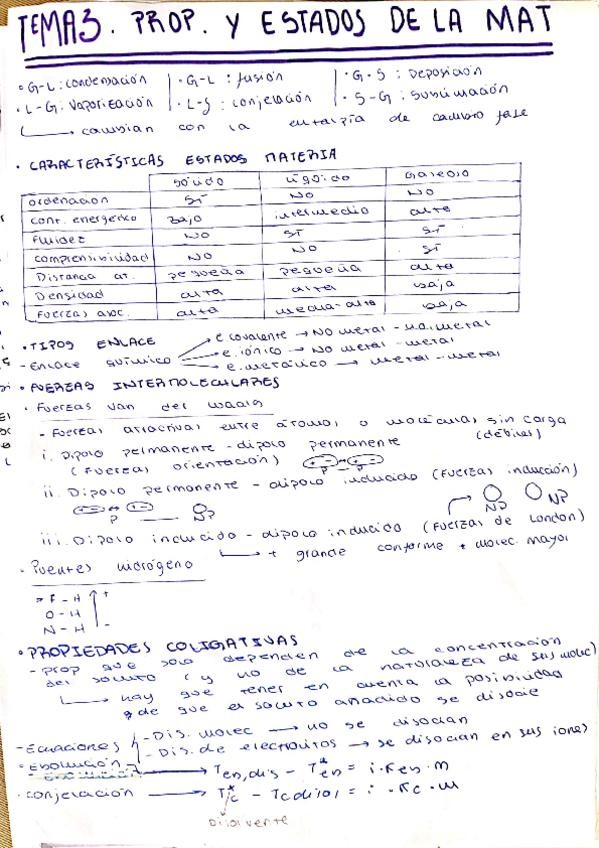 TEMA3. PROP. Y ESTADOS DE LA MAT
• G-L: condensación | • G-L: fusión | • G-S: Deposición
• L-G: Vaporización | • L-S: conjelación | • S-G: sublimación
cambian con la entalpía de cambio fase
• CARACTERÍSTICAS ESTADOS MATERIA
sólido líquido Gaseoso
ordenacion SÍ NO NO
cont. energético Bajo intermedio alto
Fluidez NO SÍ SÍ
comprensibilidad NO NO SÍ
Distancia at. pequeña pequeña alta
Densidad alta alta baja
Fuerzas atrac. alta media-alta baja
• TIPOS ENLACE
- Enlace químico
e covalente → NO metal - no metal
e. iónico → NO metal - metal
e. metálico → metal - metal
• FUERZAS INTERMOLECULARES
• Fuerzas van der waals
- Fuerzas atractivas entre átomos o moléculas sin carga
(débiles)
i. Dipolo permanente - dipolo permanente
(Fuerzas orientación)
ii. Dipolo permanente - dipolo inducido (Fuerzas inducción)
P NP
NP NP
iii. Dipolo inducido - dipolo inducido (Fuerzas de London)
+ grande conforme + molec. mayor
• Puentes hidrógeno
F-H +
O-H
N-H -
• PROPIEDADES COLIGATIVAS
- prop que solo dependen de la concentración
del soluto (y no de la naturaleza de sus molec)
hay que tener en cuenta la posibilidad
de que el soluto añadido se disocie
- Ecuaciones
- Dis. molec → no se disocian
- Dis. de electrolitos → se disocian en sus iones
• Ebullición → Teb,dis - T*eb = i·Keb·m
• conjelación → T*c - Tcdisol = i·Kc·m
Disolvente